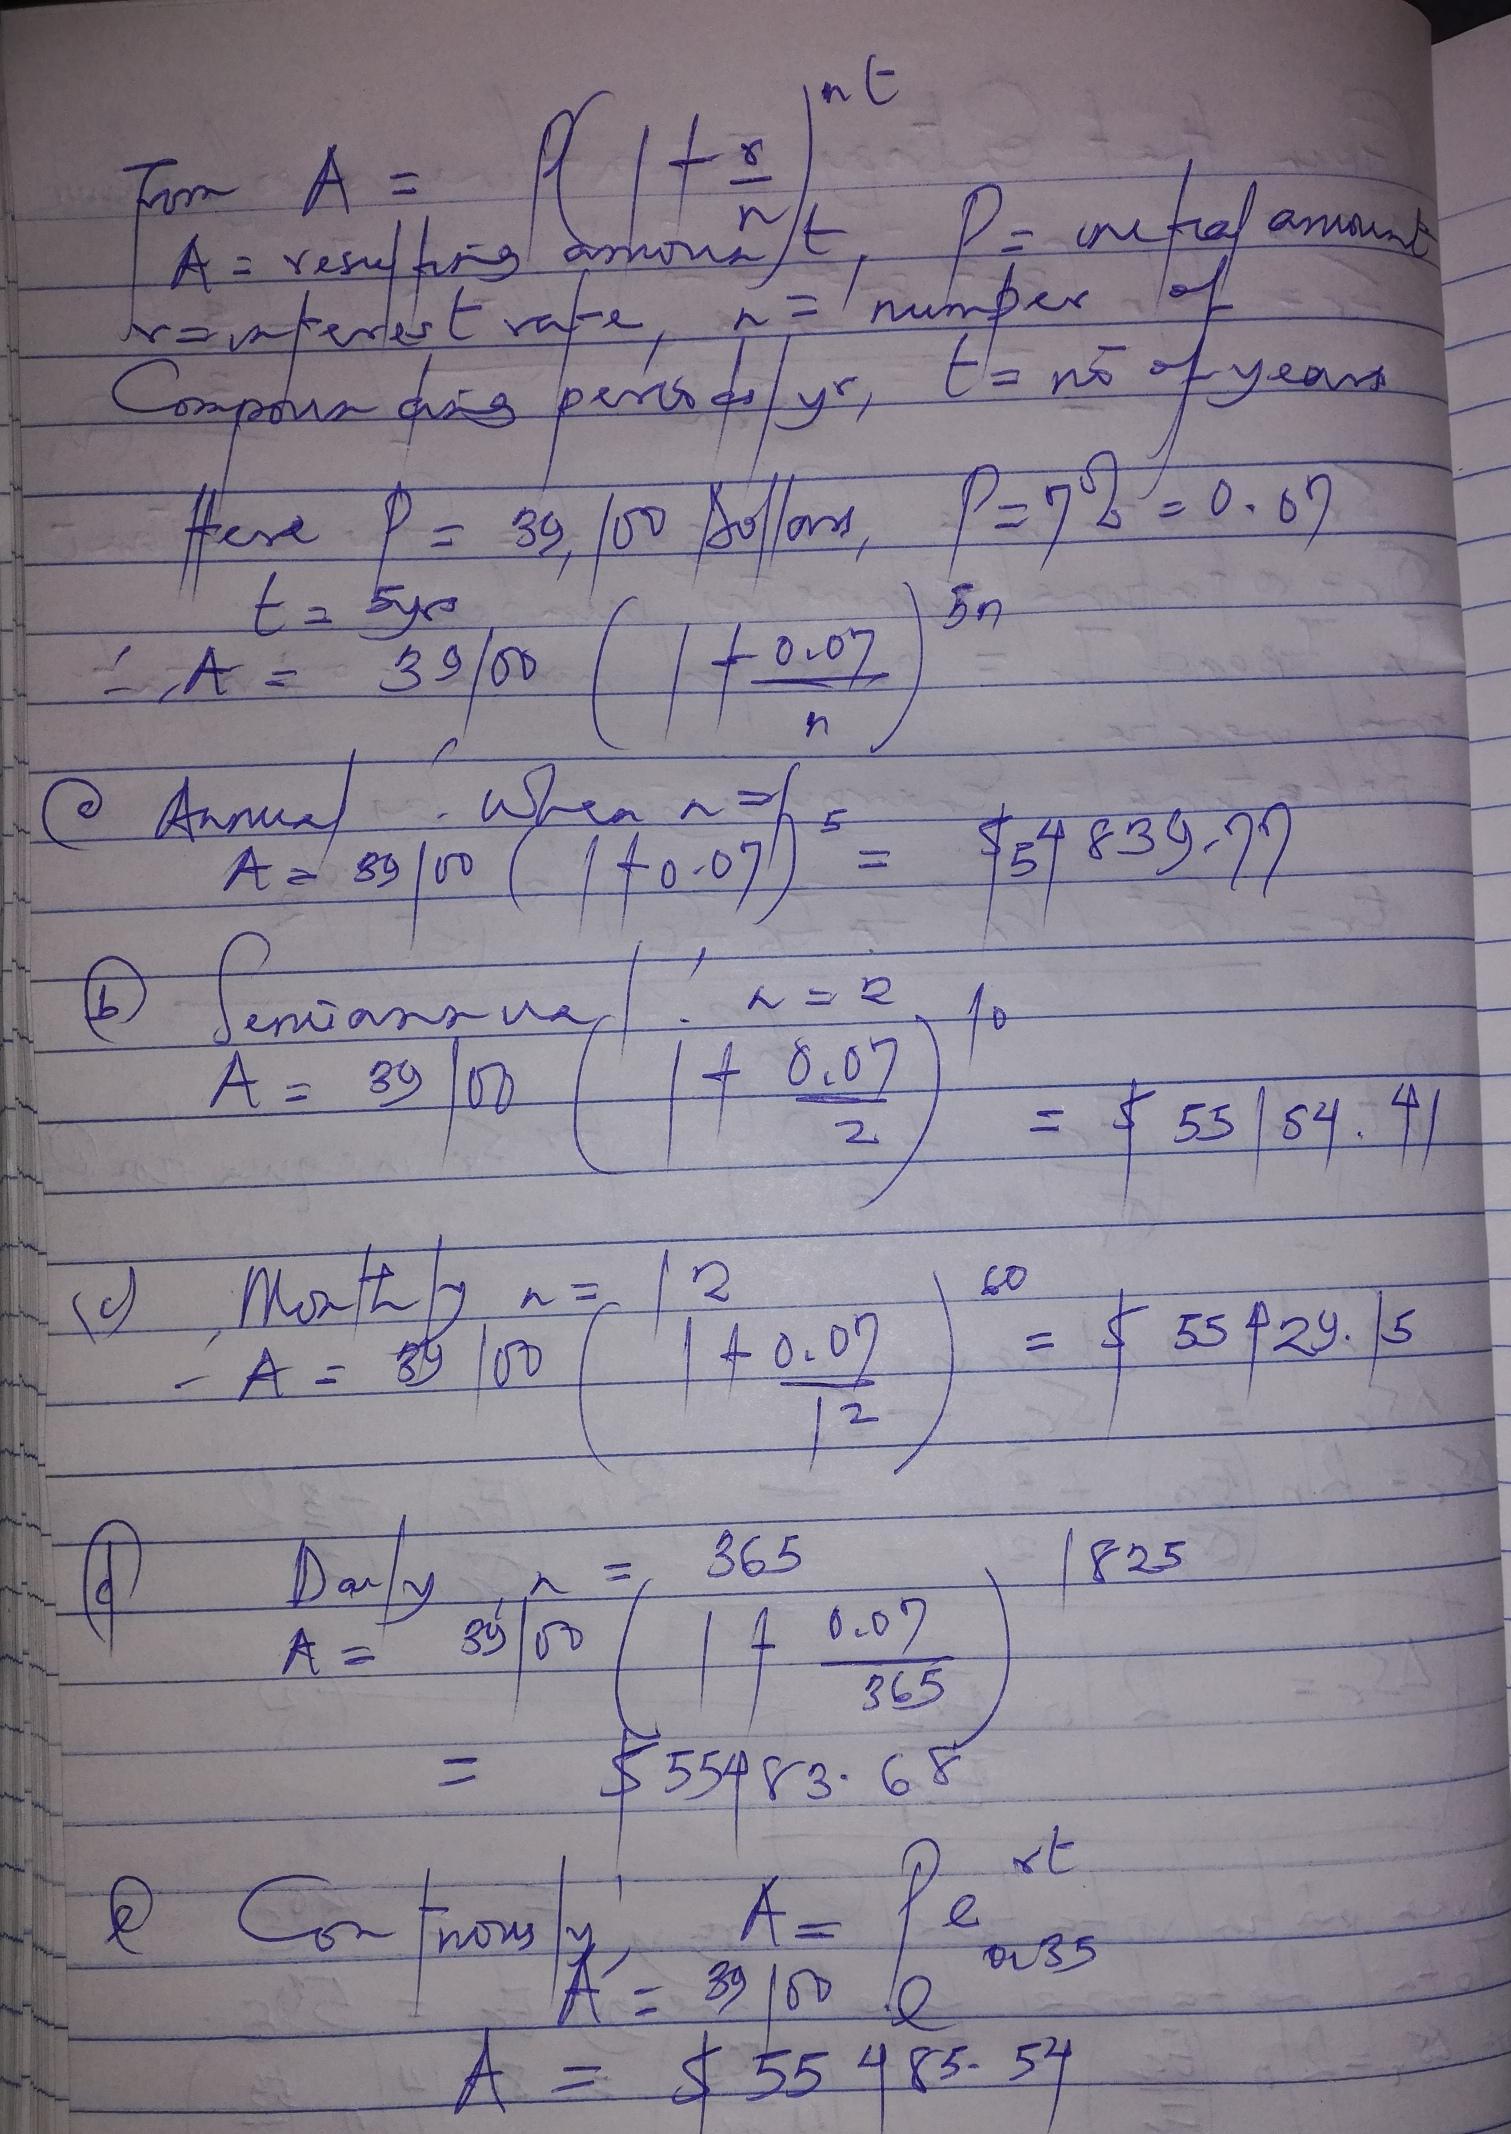 From A = P(1 + r/n)^nt
A = resulting amount, P = initial amount
r = interest rate, n = number of
Compounding periods/yr, t = no of years
Here P = 39,100 Dollars, P = 7% = 0.07
t = 5yrs
∴ A = 39100 (1 + 0.07/n)^5n
(a) Annual : When n = 1
A = 39100 (1 + 0.07)^5 = $54839.77
(b) Semiannual : n = 2
A = 39100 (1 + 0.07/2)^10 = $55154.41
(c) Monthly n = 12
A = 39100 (1 + 0.07/12)^60 = $55429.15
(d) Daily, n = 365
A = 39100 (1 + 0.07/365)^1825
= $55483.68
e Continously, A = Pe^rt
A = 39100 e^0.35
A = $55485.54